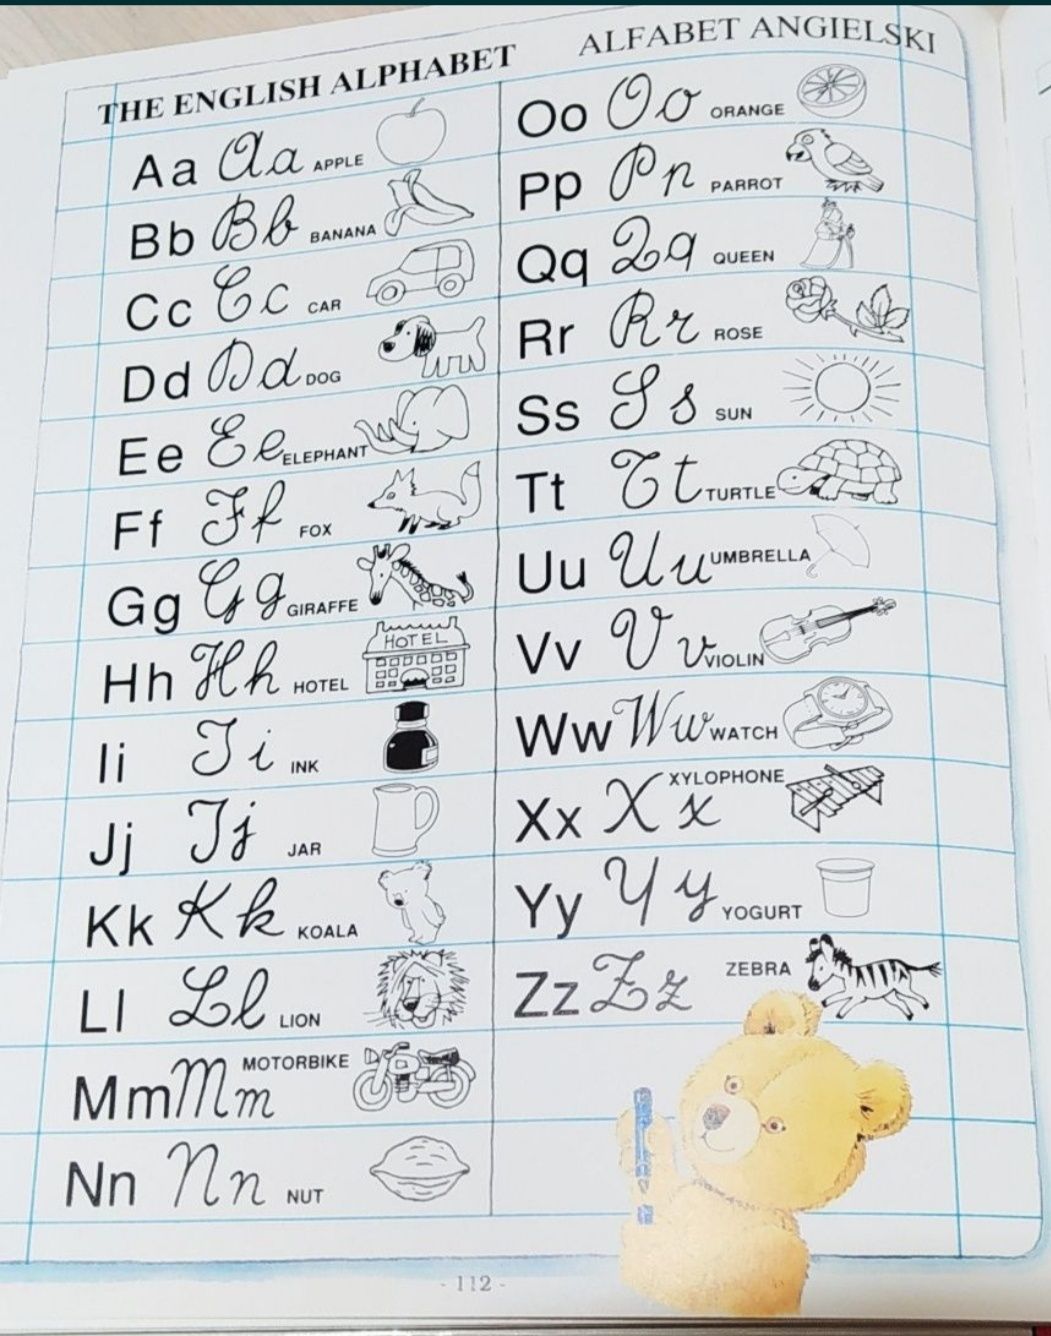 THE ENGLISH ALPHABET
ALFABET ANGIELSKI
Aa Aa APPLE
Bb Bb BANANA
Cc Cc CAR
Dd Dd DOG
Ee Ee ELEPHANT
Ff Ff FOX
Gg Gg GIRAFFE
Hh Hh HOTEL
HOTEL
Ii Ii INK
Jj Jj JAR
Kk Kk KOALA
Ll Ll LION
Mm Mm MOTORBIKE
Nn Nn NUT
Oo Oo ORANGE
Pp Pp PARROT
Qq Qq QUEEN
Rr Rr ROSE
Ss Ss SUN
Tt Tt TURTLE
Uu Uu UMBRELLA
Vv Vv VIOLIN
Ww Ww WATCH
Xx Xx XYLOPHONE
Yy Yy YOGURT
Zz Zz ZEBRA
- 112 -